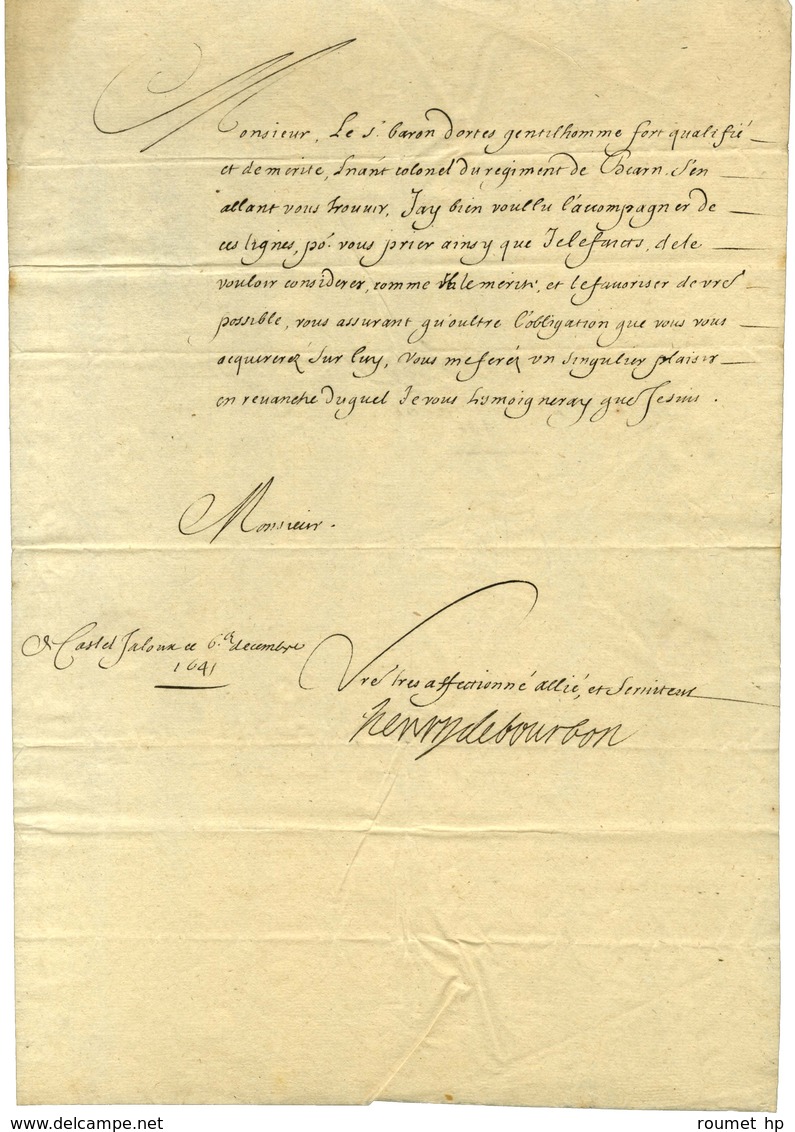 Monsieur, Le Sr. baron dortes gentilhomme fort qualifié
et de merite, Lnant colonel du regiment de Bearn. S'en
allant vous trouver, Jay bien voullu l'accompagner de
ces lignes, po.r vous prier ainsy que Je le faicts, de le
vouloir considerer, comme il le merite, et le favoriser de vre
possible, vous assurant qu'oultre l'obligation que vous vous
acquererez sur luy, vous me ferez un singulier plaisir
en revanche duquel Je vous tesmoigneray que Je suis.
Monsieur.
De Castel Jaloux ce 6.e decembre
1641
Vre tres affectionné allié, et Serviteur
henry de bourbon
www.delcampe.net
roumet hp